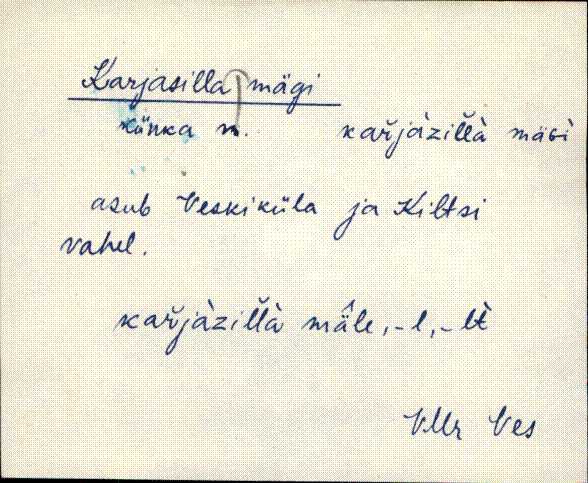 Karjasilla mägi
künka n. kar̆jàzil̆l̆à mäɢì
asub Veskiküla ja Kiltsi
vahel.
kar̆jàzil̆l̆à mä̂le, -l, -lt̀
VMr Ves